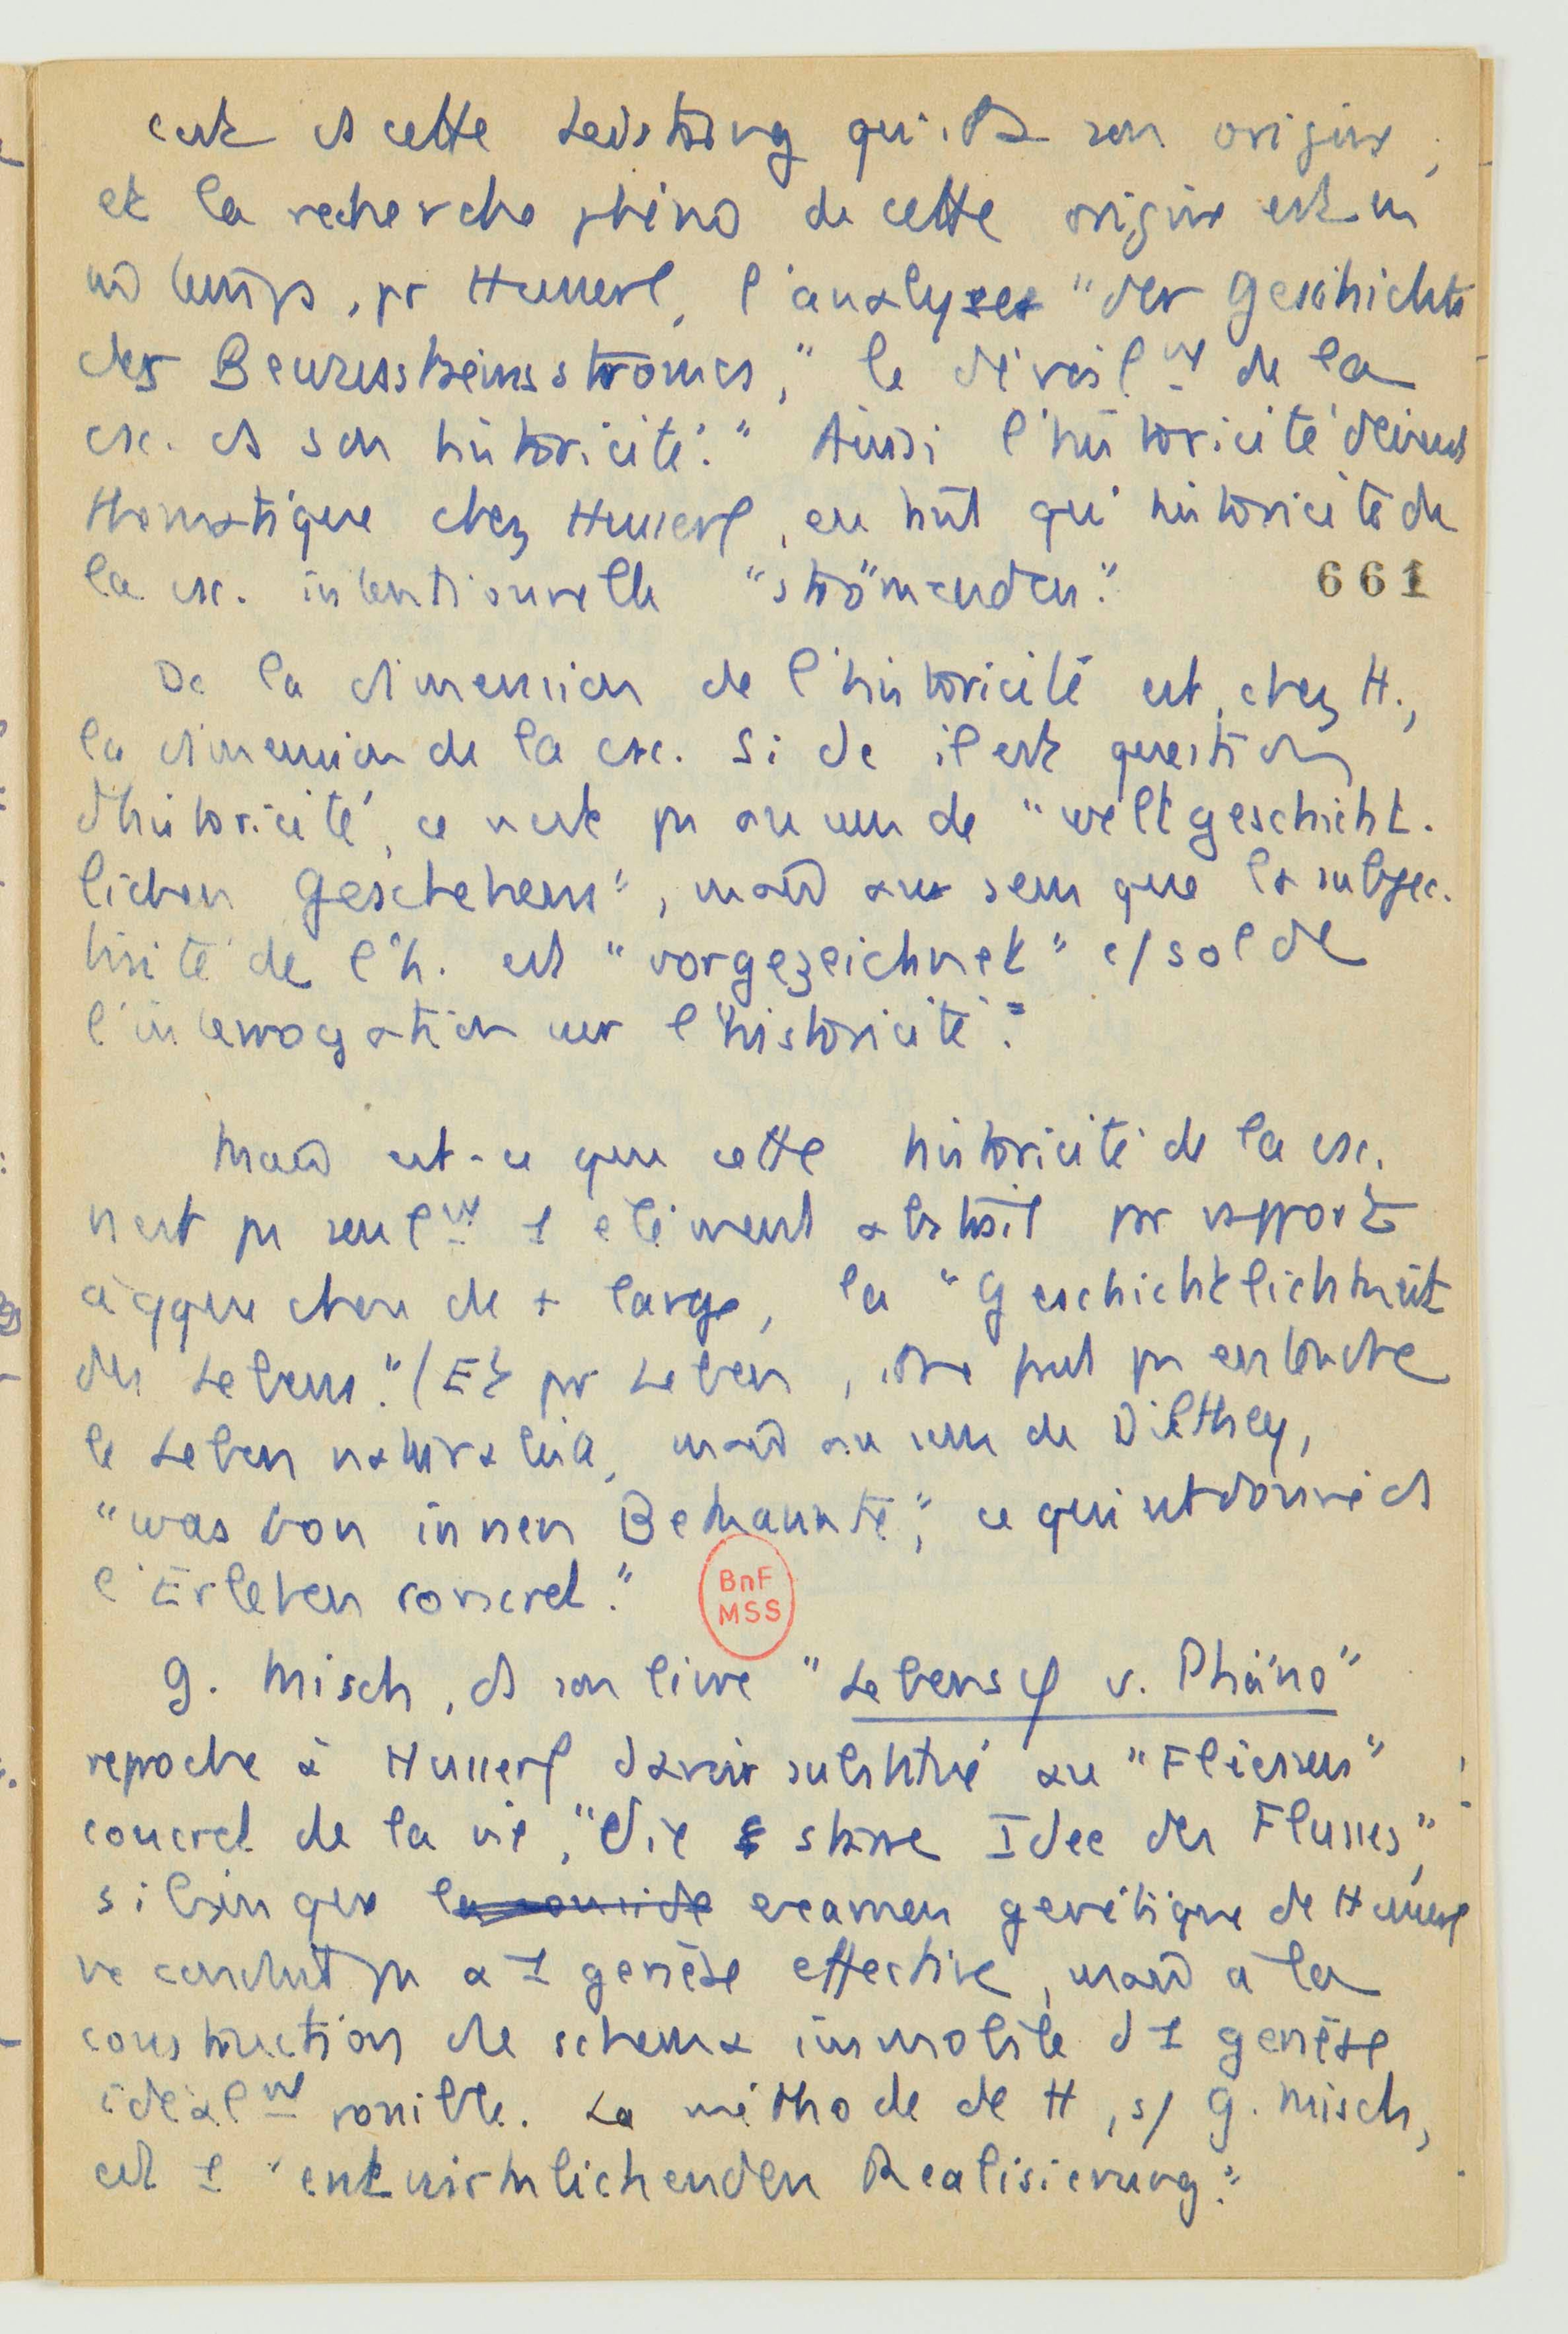 c'est ds cette Leistung qu'ils ont son origine,
et la recherche phéno de cette origine est en
m̄ temps, pr Husserl, l'analyse "der Geschichte
des Bewusstseinsstromes," le dévoil<sup>nt</sup> de la
csc. ds son historicité." Ainsi l'historicité devient
thématique chez Husserl, en tant qu'historicité de
la csc. intentionnelle "strömenden."
661
Dc la dimension de l'historicité est, chez H.,
la dimension de la csc. Si dc il est question
d'historicité, ce n'est pas au sens de "weltgeschicht.
lichen Geschehens", mais au sens que la subjec.
tivité de l'h. est "vorgezeichnet" c/ sol de
l'interrogation sur l'historicité."
Mais est-ce que cette historicité de la csc.
n'est pas seul<sup>nt</sup> 1 élément abstrait par rapport
à qque chose de + large, la "Geschichtlichkeit
des Lebens." (Et par Leben, il ne faut pas entendre
le Leben naturalisé, mais au sens de Dilthey,
"was von innen Bekannte," ce qui est donné ds
l'Erleben concret."
BnF
MSS
G. Misch, ds son livre "Lebensφ u. Phäno"
reproche à Husserl d'avoir substitué au "Fliessen"
concret de la vie, "die starre Idee des Flusses",
si bien que examen génétique de Husserl
ne conduit pas à 1 genèse effective, mais à la
construction de schema immobile d'1 genèse
idéal<sup>nt</sup> possible. La méthode de H, s/ G. Misch,
est 1 "entwirklichenden Realisierung."